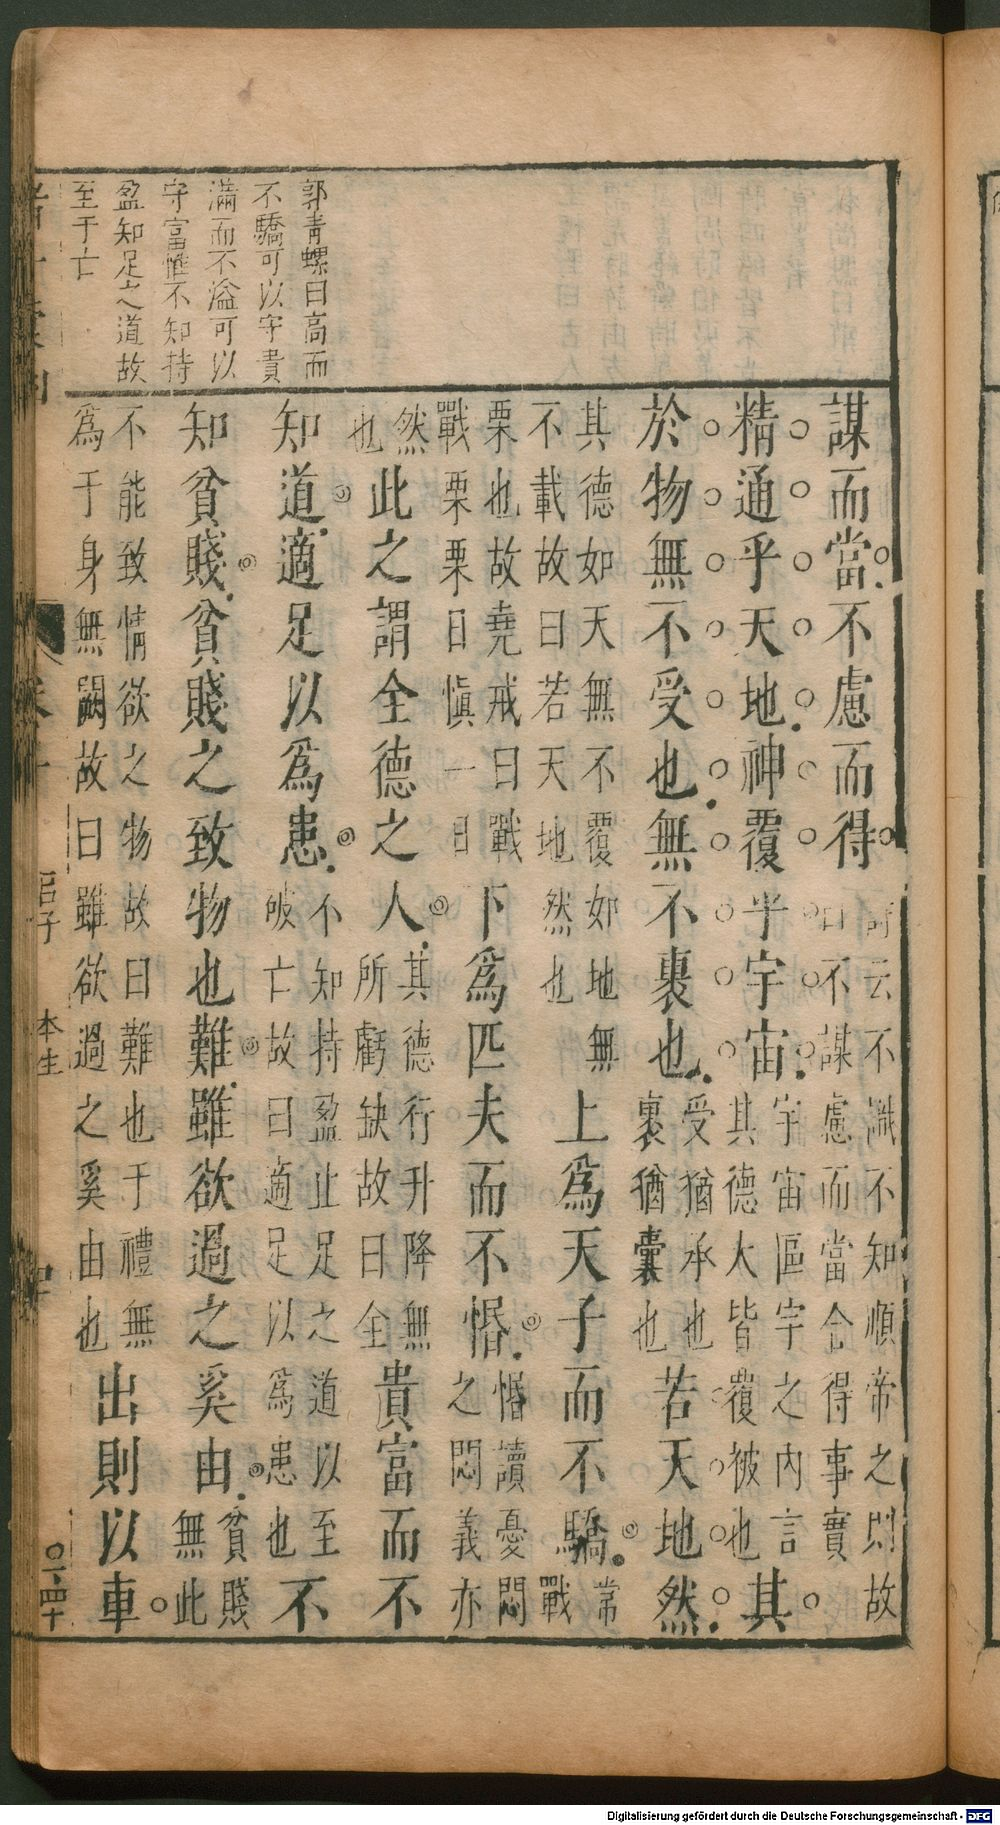 郭青螺曰高而
不驕可以守貴
滿而不溢可以
守富惟不知持
盈知足之道故
至于亡
謀而當不慮而得詩云不識不知順帝之則故曰不謀慮而當合得事實
精通乎天地神覆乎宇宙宇宙區宇之內言其德大皆覆被也其
於物無不受也無不裹也受猶承也裹猶囊也若天地然
其德如天無不覆如地無不載故曰若天地然也上爲天子而不驕常戰
栗也故堯戒曰戰戰栗栗日慎一日下爲匹夫而不惛惛讀憂悶之悶義亦
然也此之謂全德之人其德行升降無所虧缺故曰全貴富而不
知道適足以爲患不知持盈止足之道以至破亡故曰適足以爲患也不
知貧賤貧賤之致物也難雖欲過之奚由貧賤無此
不能致情欲之物故曰難也于禮無爲于身無闕故曰雖欲過之奚由也出則以車
呂子 本生
Digitalisierung gefördert durch die Deutsche Forschungsgemeinschaft - DFG